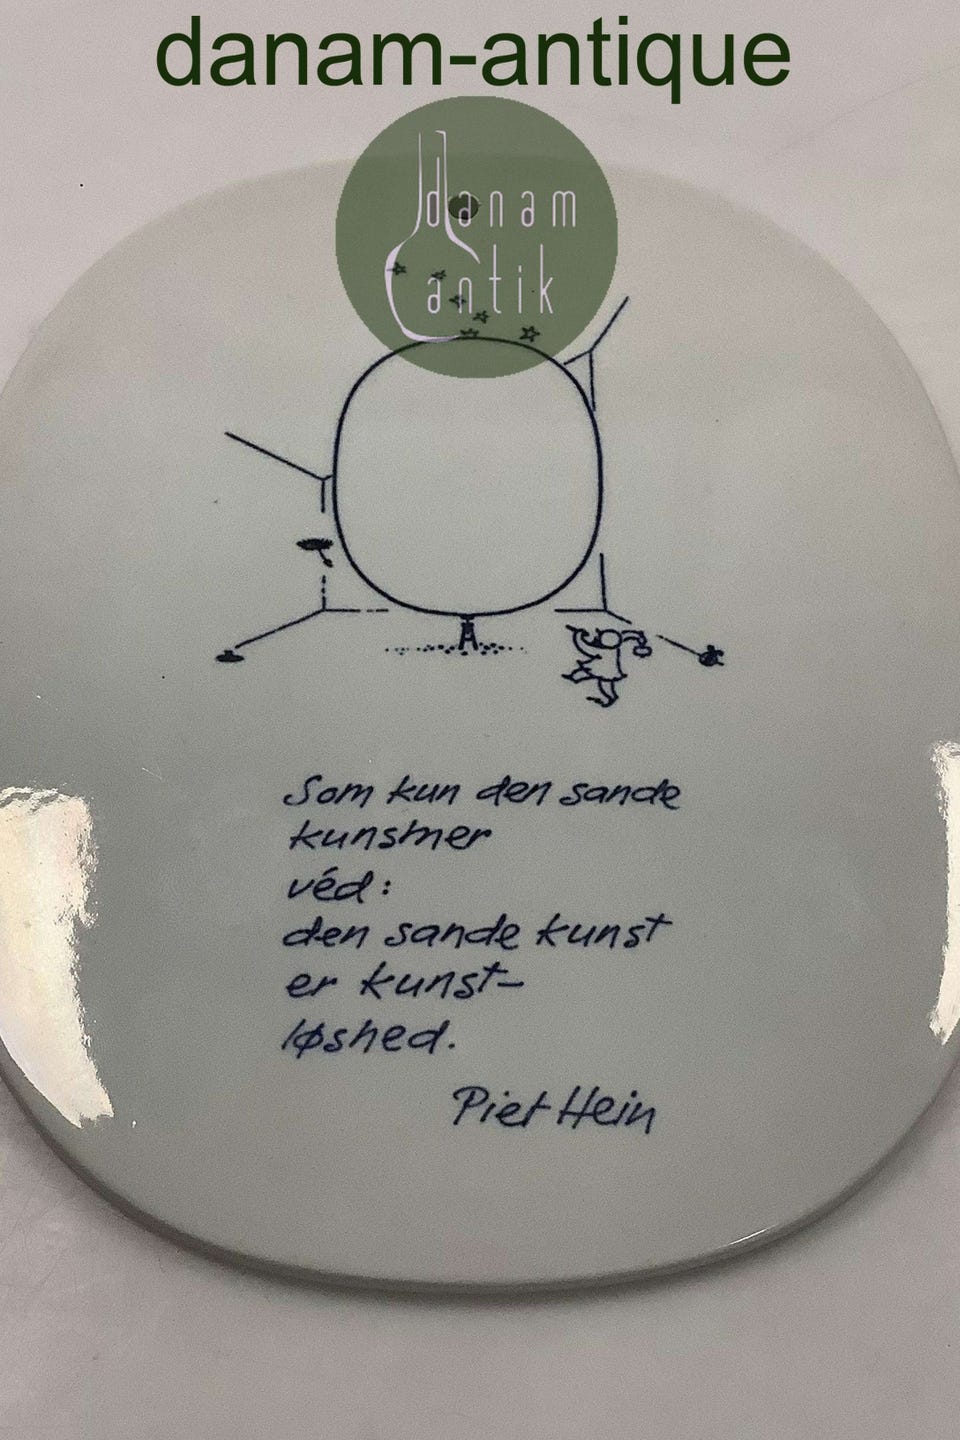 danam-antique
danam
antik
Som kun den sande
kunstner
véd:
den sande kunst
er kunst-
løshed.
Piet Hein